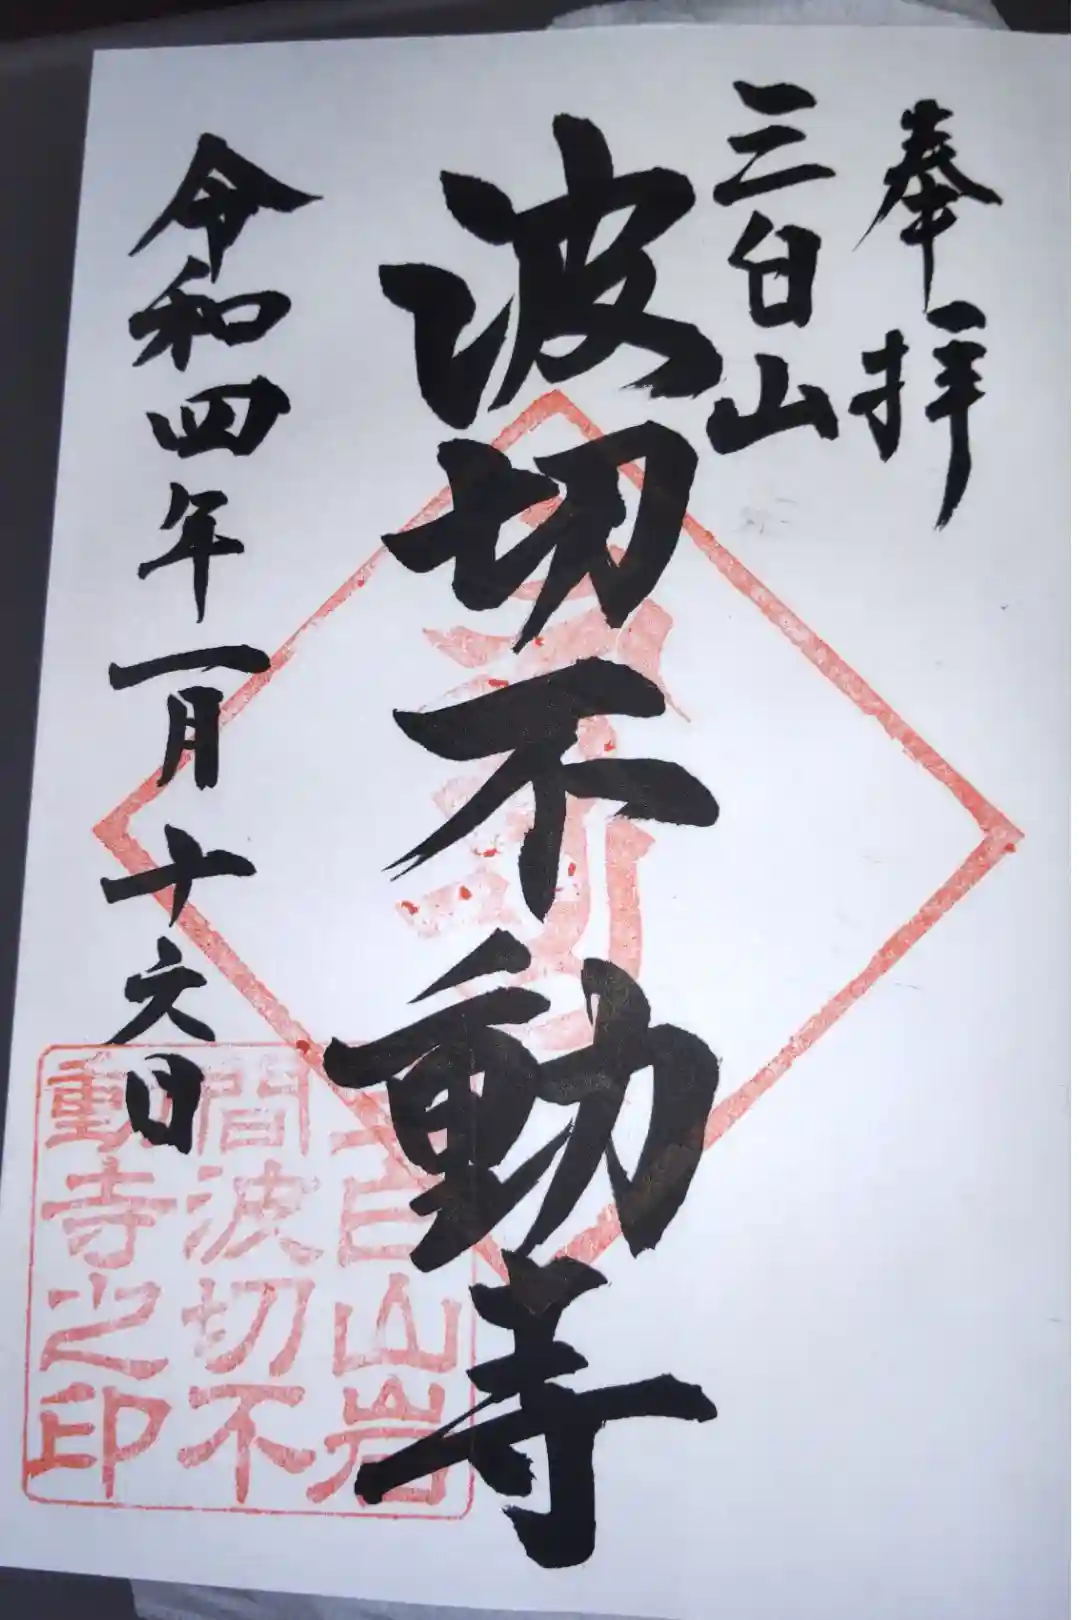 奉拝
三白山
波切不動寺
令和四年一月十六日
三白山岩
間波切不
動寺之印